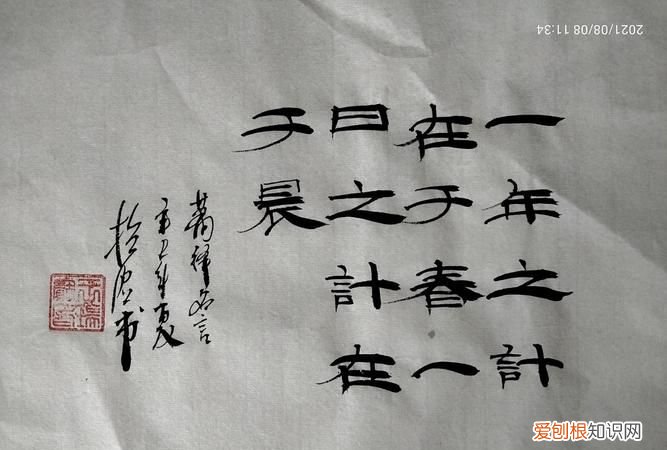 一年之计
在于春一
日之計在
于晨
萧绎名言
辛丑年夏
书
2021/08/08 11:34
爱刨根知识网